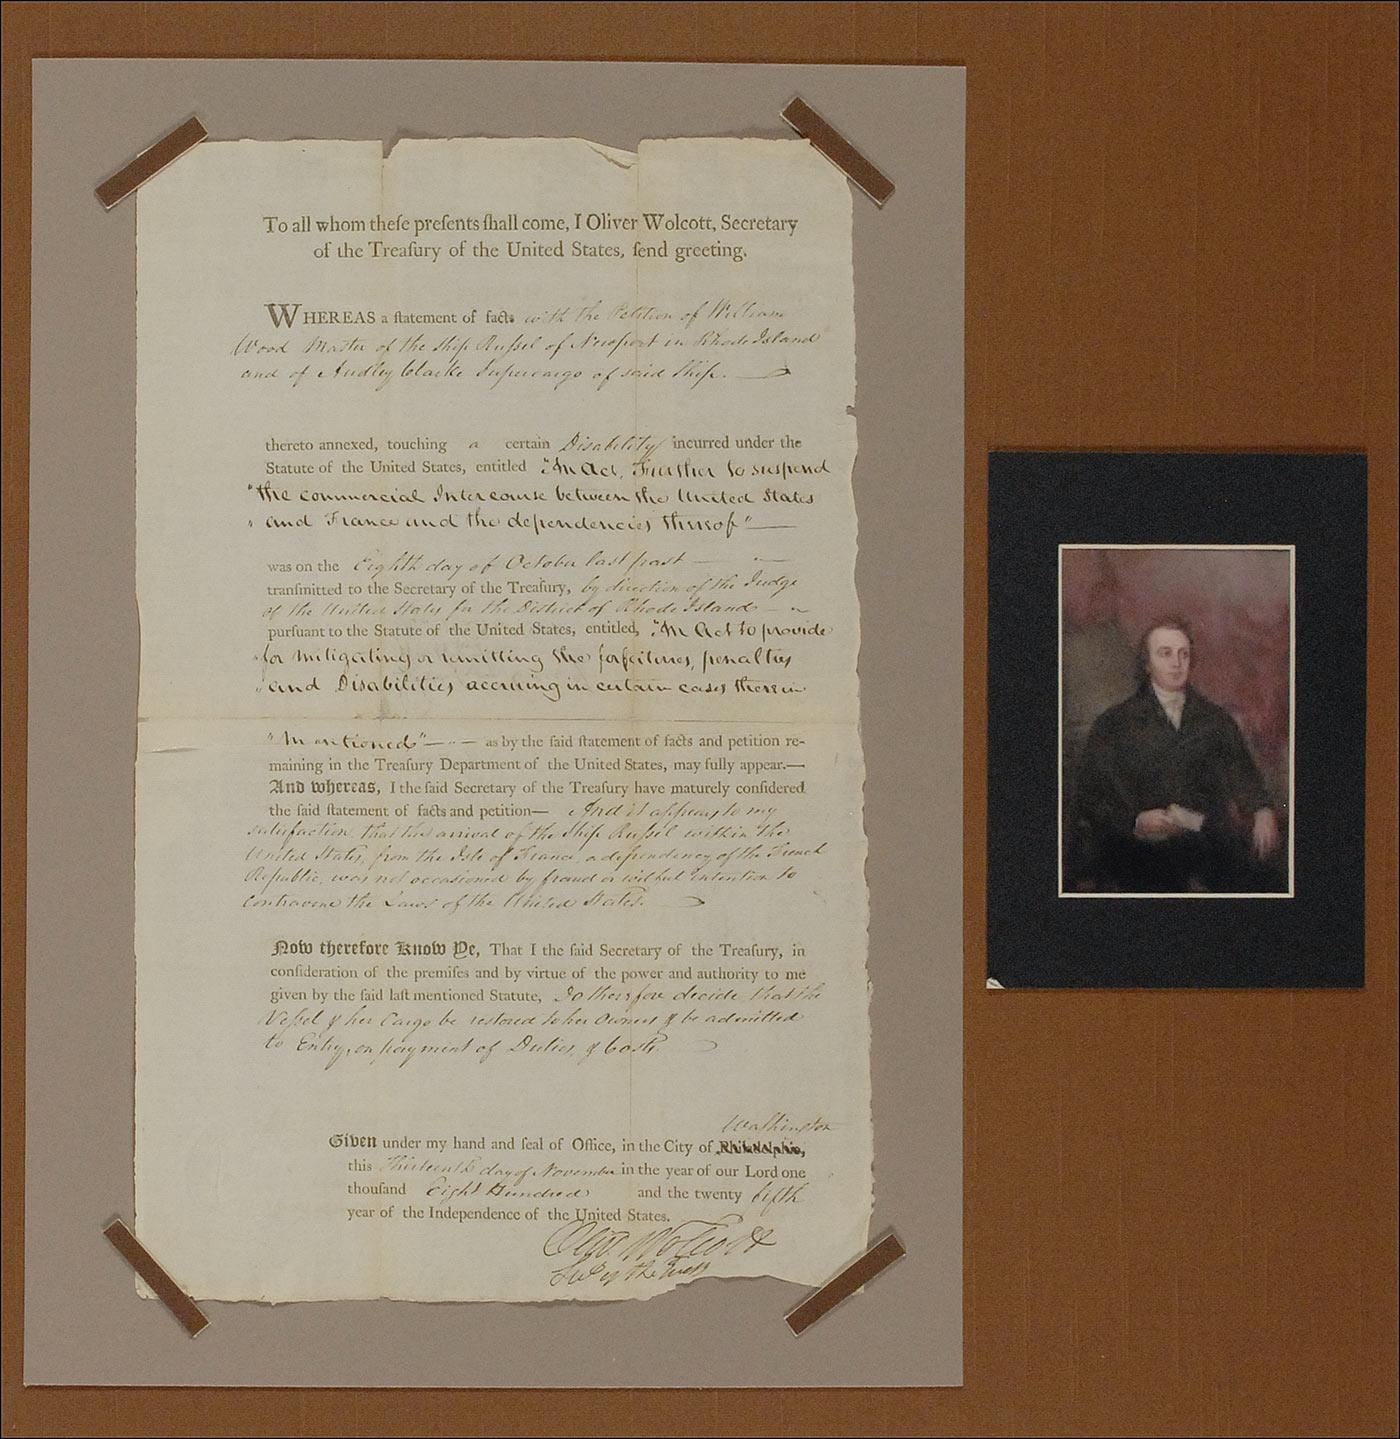 To all whom theſe preſents ſhall come, I Oliver Wolcott, Secretary
of the Treaſury of the United States, ſend greeting.
WHEREAS a ſtatement of facts with the Petition of William
Wood Master of the Ship Russel of Newport in Rhode Island
and of Audley Clarke Supercargo of said Ship.
thereto annexed, touching a certain Disability incurred under the
Statute of the United States, entitled "An Act, Further to suspend
"the commercial Intercourse between the United States
"and France and the dependencies thereof"
was on the Eighth day of October last past
tranſmitted to the Secretary of the Treaſury, by direction of the Judge
of the United States for the District of Rhode Island
purſuant to the Statute of the United States, entitled, "An Act to provide
"for mitigating or remitting the forfeitures, penalties
"and Disabilities accruing in certain cases therein
"Mentioned" — as by the ſaid ſtatement of facts and petition re-
maining in the Treaſury Department of the United States, may fully appear.—
And whereas, I the ſaid Secretary of the Treaſury have maturely conſidered
the ſaid ſtatement of facts and petition— And it appears to my
satisfaction, that the arrival of the Ship Russel within the
United States, from the Isle of France, a dependency of the French
Republic, was not occasioned by fraud or wilful intention to
contravene the Laws of the United States.
Now therefore know Ye, That I the ſaid Secretary of the Treaſury, in
conſideration of the premiſes and by virtue of the power and authority to me
given by the ſaid laſt mentioned Statute, Do therefore decide, that the
Vessel & her Cargo be restored to her Owners & be admitted
to Entry, on payment of Duties, & Costs.
Washington
Given under my hand and ſeal of Office, in the City of Philadelphia,
this Thirteenth day of November in the year of our Lord one
thouſand Eight Hundred and the twenty fifth
year of the Independence of the United States.
Olivr Wolcott
Secy of the Treasy